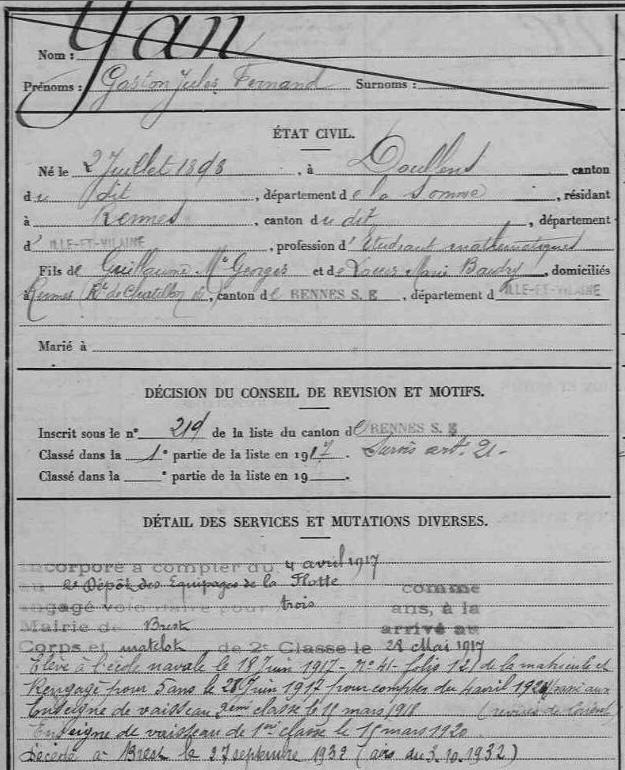 Nom : Yan
Prénoms : Gaston Jules Fernand Surnoms :
ÉTAT CIVIL.
Né le 2 Juillet 1898, à Doullens canton
du dit, département de la Somme, résidant
à Rennes, canton du dit, département
d' ILLE-ET-VILAINE, profession d'Etudiant mathématiques
Fils de Guillaume Mie Georges et de Louise Marie Baudry, domiciliés
à Rennes (R. de Chatillon), canton de RENNES S. E, département d ILLE-ET-VILAINE
Marié à
DÉCISION DU CONSEIL DE REVISION ET MOTIFS.
Inscrit sous le n° 219 de la liste du canton de RENNES S. E
Classé dans la 1e partie de la liste en 1917. Sursis art. 21-
Classé dans la e partie de la liste en 19
DÉTAIL DES SERVICES ET MUTATIONS DIVERSES.
Incorporé à compter du 4 avril 1917
au 2e Dépôt des Equipages de la Flotte comme
engagé volontaire pour trois ans, à la
Mairie de Brest arrivé au
Corps et matelot de 2e Classe le 21 Mai 1917
Elève à l'école navale le 18 Juin 1917 - n° 41- folio 121 de la matricule et
Rengagé pour 5 ans le 28 Juin 1917 pour compter du 4 avril 1920
Enseigne de vaisseau 2ème classe le 15 mars 1918
Enseigne de vaisseau de 1ère classe le 15 mars 1920
Décédé à Brest le 27 septembre 1932 (avis du 3.10.1932)